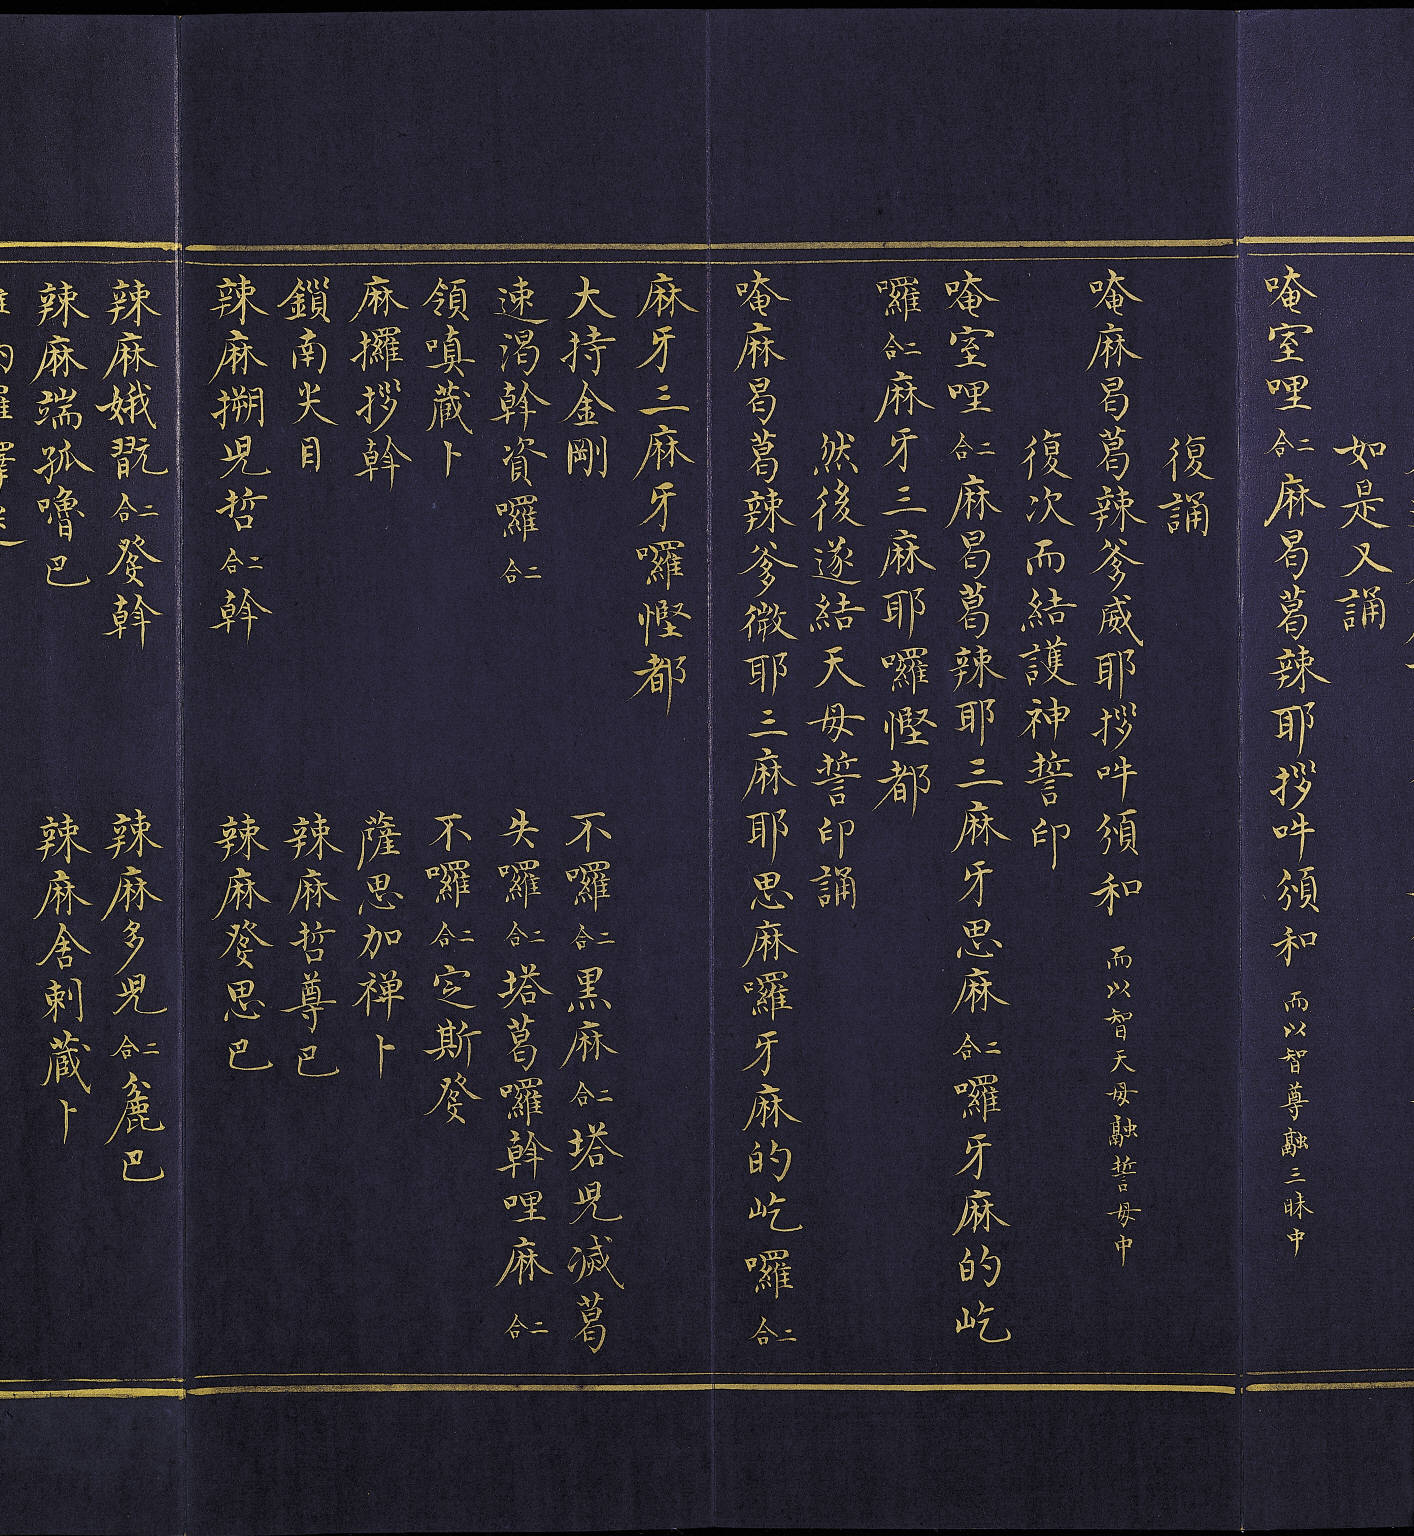 如是又誦
唵室哩二合麻曷葛辣耶拶吽須和而以智尊融三昧中
復誦
唵麻曷葛辣爹威耶拶吽須和而以智天母融誓母中
復次而結護神誓印
唵室哩二合麻曷葛辣耶三麻牙思麻二合囉牙麻的屹
囉二合麻牙三麻耶囉慳都
然後遂結天母誓印誦
唵麻曷葛辣爹微耶三麻耶思麻囉牙麻的屹囉二合
麻牙三麻牙囉慳都
大持金剛 不囉二合黑麻二合塔児減葛
速渴斡資囉二合 失囉二合塔葛囉斡哩麻二合
領嗔蔵卜 不囉二合定斯發
麻攞拶斡 薩思加禅卜
鎖南尖目 辣麻哲尊巴
辣麻搠児哲二合斡 辣麻發思巴
辣麻娥翫二合發斡 辣麻多児二合麄巴
辣麻端孤嚕巴 辣麻舍剌蔵卜